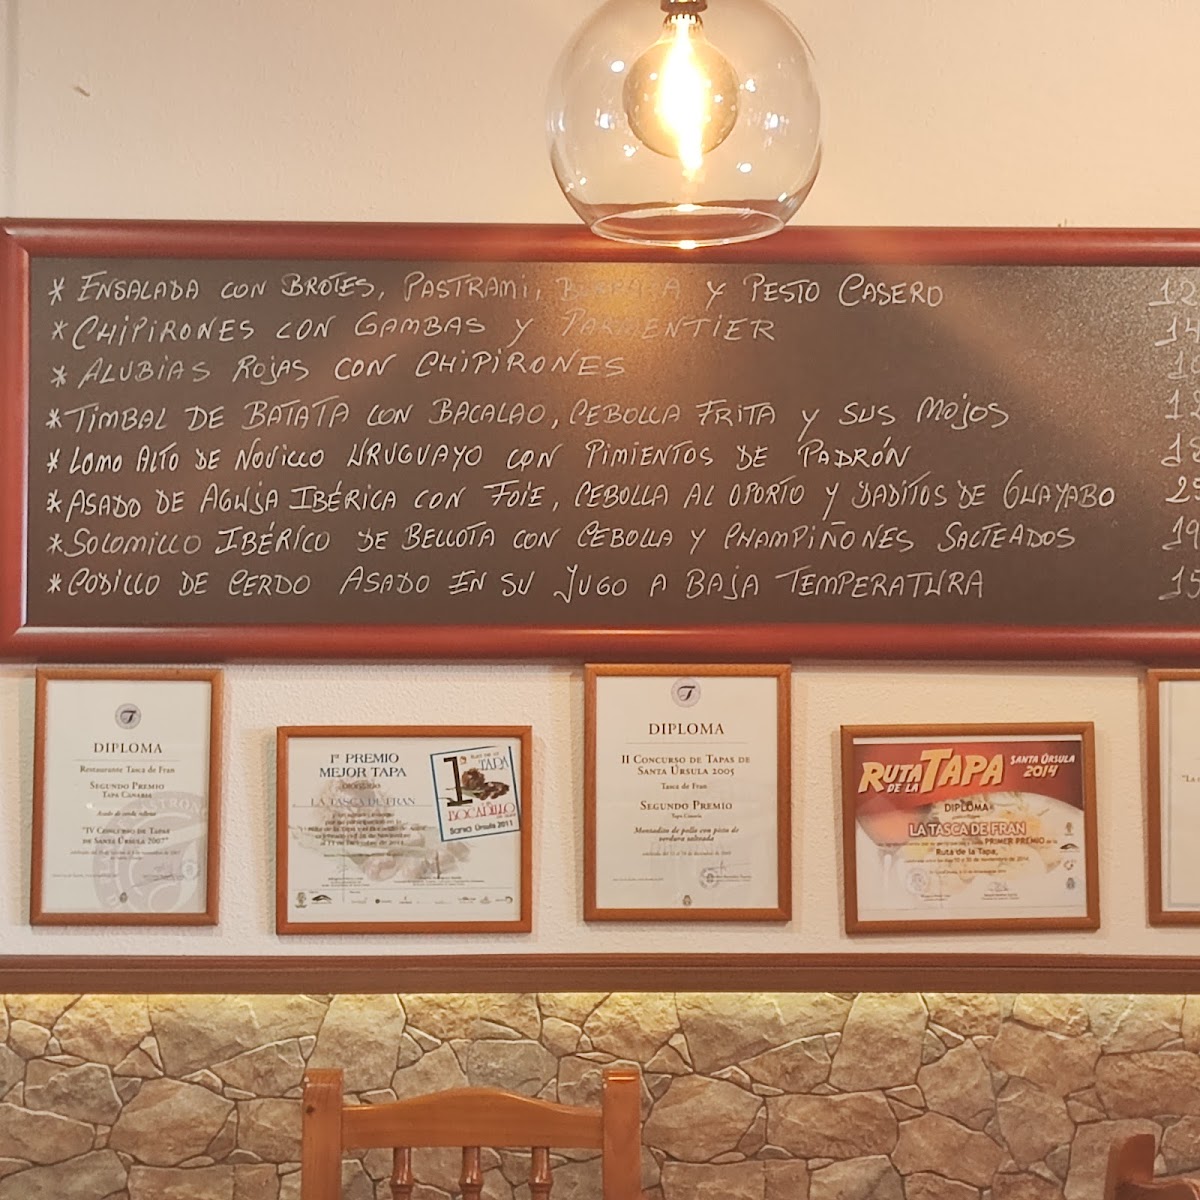 * ENSALADA CON BROTES, PASTRAMI, BURRATA Y PESTO CASERO 12
* CHIPIRONES CON GAMBAS Y PARMENTIER
* ALUBIAS ROJAS CON CHIPIRONES
* TIMBAL DE BATATA CON BACALAO, CEBOLLA FRITA Y SUS MOJOS
* LOMO ALTO DE NOVILLO URUGUAYO CON PIMIENTOS DE PADRÓN
* ASADO DE AGUJA IBÉRICA CON FOIE, CEBOLLA AL OPORTO Y DADITOS DE GUAYABO
* SOLOMILLO IBÉRICO DE BELLOTA CON CEBOLLA Y CHAMPIÑONES SALTEADOS 19
* CODILLO DE CERDO ASADO EN SU JUGO A BAJA TEMPERATURA 15
DIPLOMA
Restaurante Tasca de Fran
SEGUNDO PREMIO
TAPA CANARIA
"IV CONCURSO DE TAPAS
DE SANTA ÚRSULA 2007"
1º PREMIO
MEJOR TAPA
LA TASCA DE FRAN
1ª RUTA DE LA
TAPA
BOCADILLO
Santa Úrsula 2011
DIPLOMA
II CONCURSO DE TAPAS DE
SANTA ÚRSULA 2005
Tasca de Fran
SEGUNDO PREMIO
Tapa Canaria
Montadito de pollo con pisto de
verdura salteada
RUTA DE LA TAPA SANTA ÚRSULA 2014
DIPLOMA
LA TASCA DE FRAN
PRIMER PREMIO
Ruta de la Tapa,